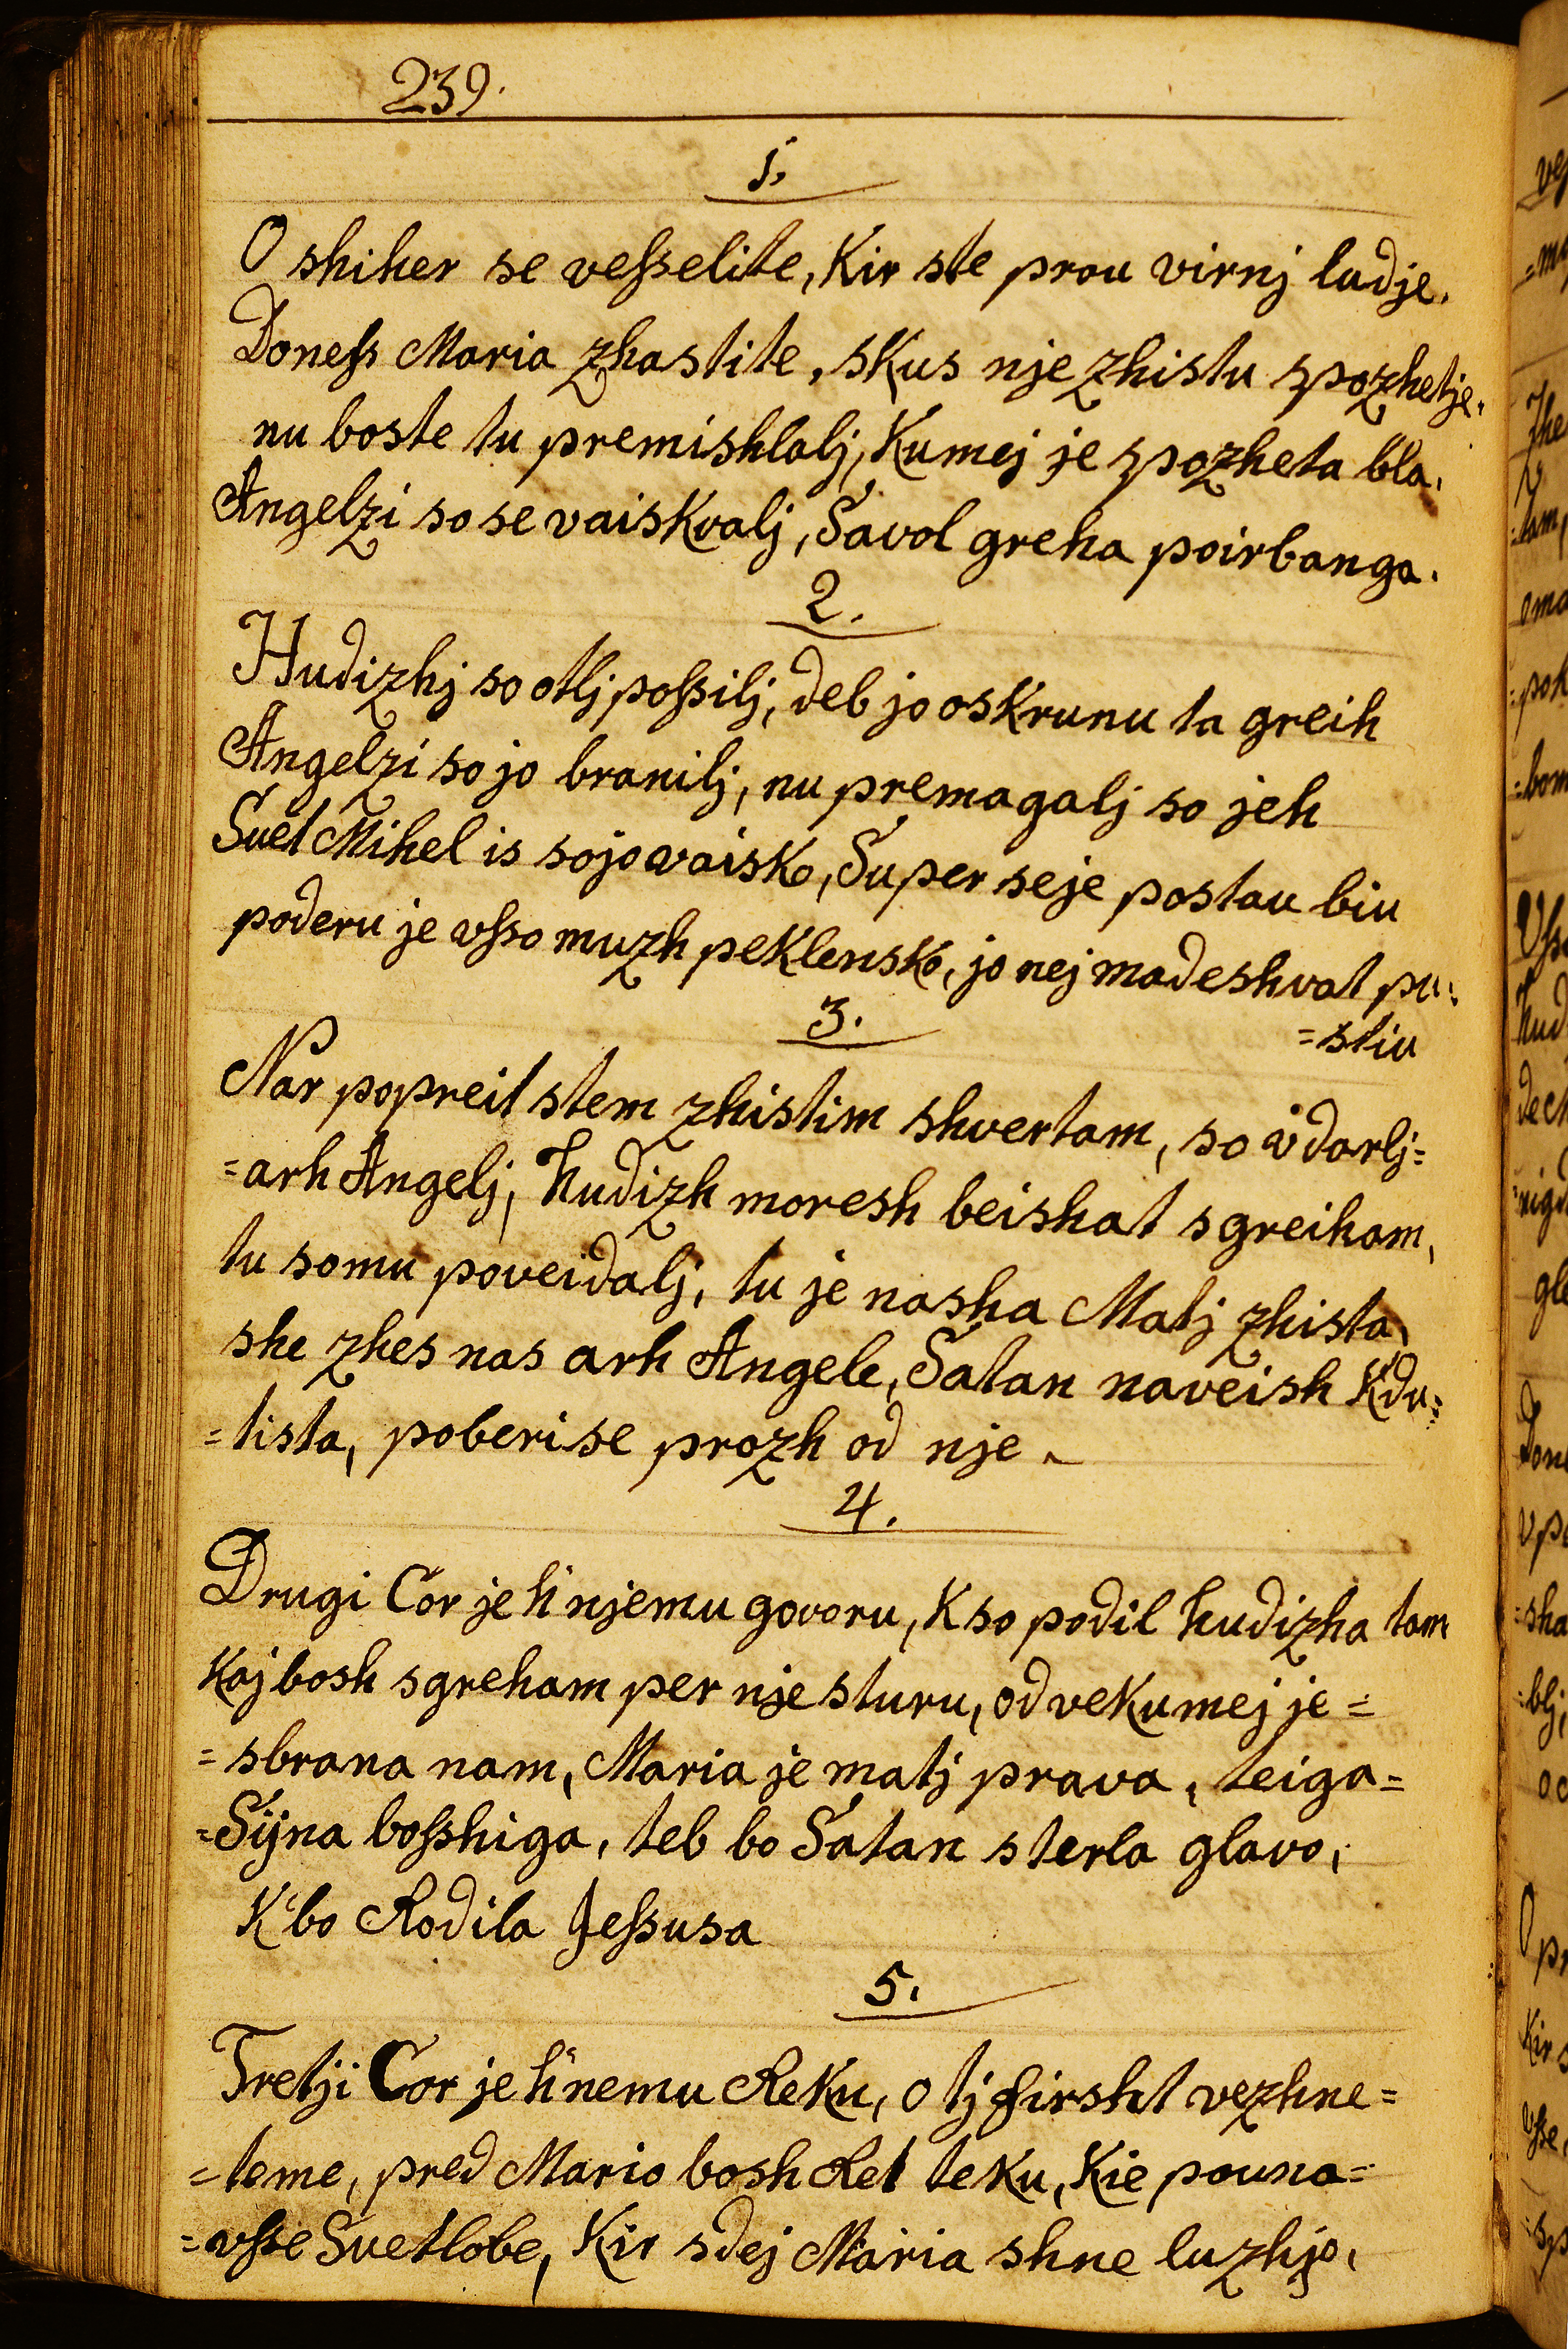 239.
1.
O shiher se veſselite, Kir ste prou virnj ludje.
Doneſs Maria zhastite, skus nje zhistu spozhetje.
nu boste tu premishlalj, Kumej je spozheta bla,
Angelzi so se vaiskvalj, Savol greha poirbanga.
2.
Hudizhj so otlj poſsilj, deb jo oskrunu ta greih
Angelzi so jo branilj, nu premagalj so jeh
Suet Mihel is sojo vaisko, Super se je postau biu
poderu je vſso muzh peklensko, jo nej madeshvat pu=
=stiu
3.
Nar popreit stem zhistim shvertam, so vdarlj=
=arh Angelj, hudizh moresh beishat sgreiham,
tu somu poveidalj, tu je nasha Matj zhista,
she zhes nas arh Angele, Satan naveish Kdu=
=tista, poberise prozh od nje.
4.
Drugi Cor je h'njemu govoru, K so podil hudizha tam
Kaj bosh sgreham per nje sturu, od vekumej je=
=sbrana nam, Maria je matj prava, teiga=
=Sijna boſshiga, teb bo Satan sterla glavo,
K'bo Rodila Jeſsusa
5.
Tretji Cor je h'nemu Reku, O tj firsht vezhne=
=teme, pred Mario bosh Ret teku, Kie pouna=
=vſse Svetlobe, Kir sdej Maria shne luzhjo,